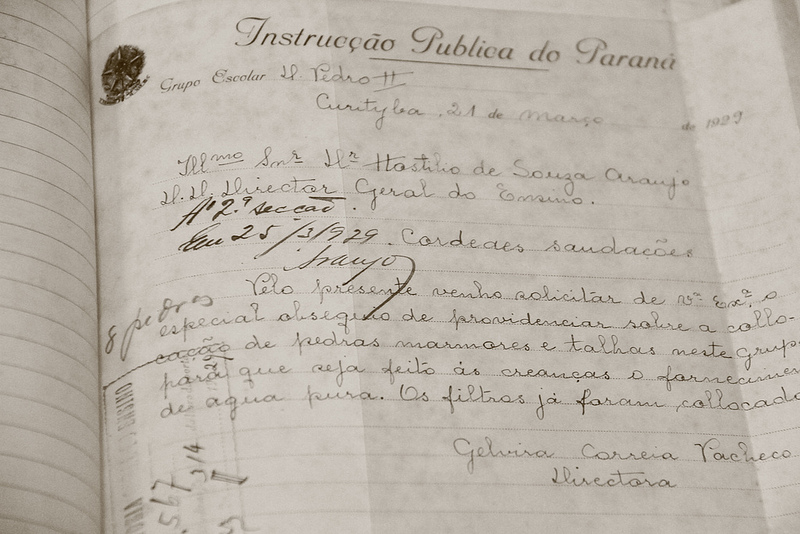 Instrucção Publica do Paraná
Grupo Escolar D. Pedro II
Curityba, 21 de março de 1929
Illmo Snr Dr Hostilio de Souza Araujo
D.D. Director Geral do Ensino.
A' 2.ª secção.
Em 25/3/929. Cordeaes saudações
Araujo
Pelo presente venho solicitar de v.ª Ex.ª o
8 pedras
especial obsequio de providenciar sobre a collo-
cação de pedras marmores e talhas neste grupo
para que seja feito ás creanças o fornecimen
de agua pura. Os filtros já foram collocado
Gelvira Correia Pacheco
Directora
567
314